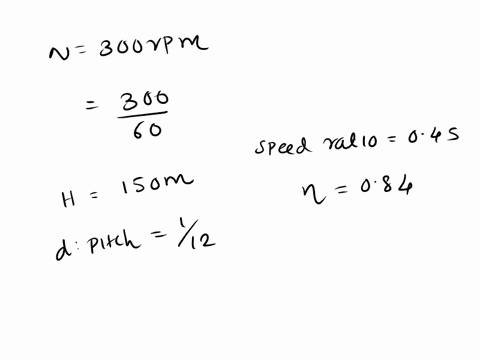 N = 300 rpm
= 300/60
H = 150m
d : pitch = 1/12
speed ratio = 0.45
η = 0.84